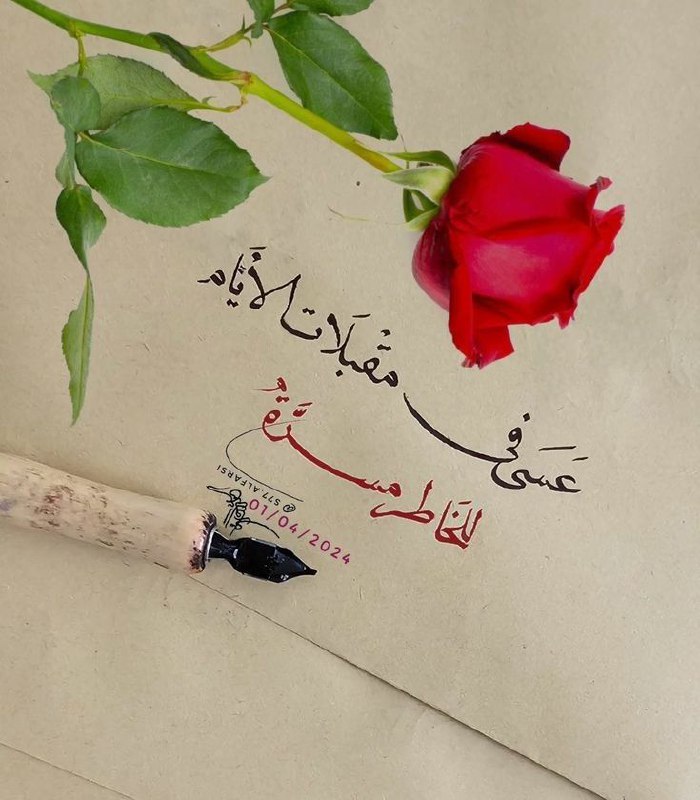 عَسَى في مقْبَلَات الأَيَّام
للخَاطر مسرَّةُ
@S77.ALFARSI
01/04/2024